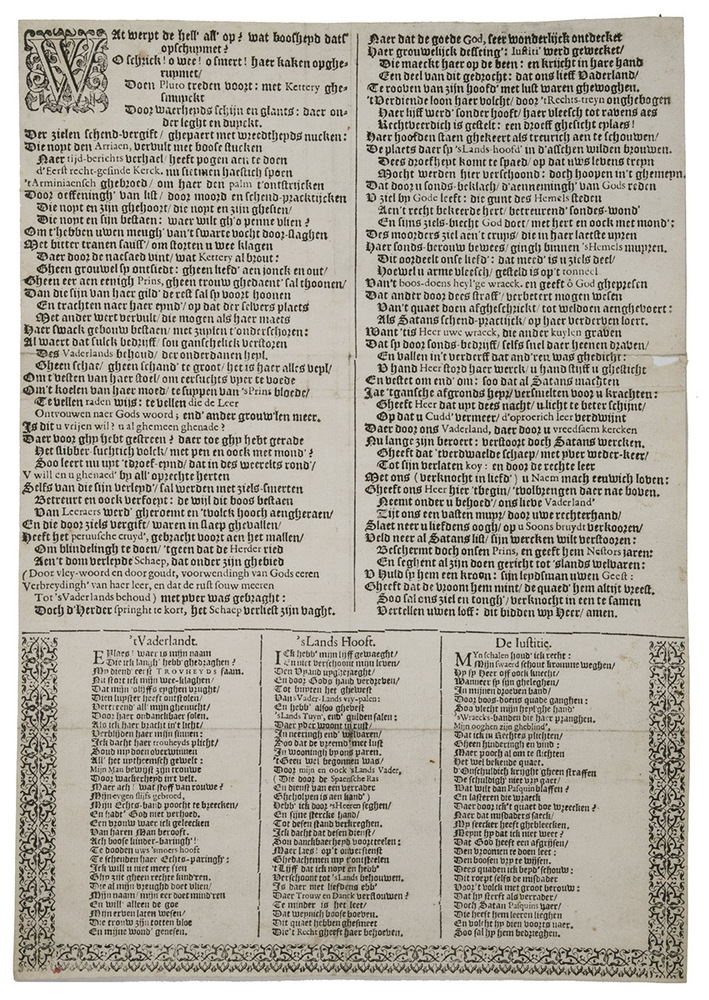 WAt werpt de hell' all' op? wat boosheyd dats'
opschupmet?
O schrick! o wee! o smert! haer kaken opghe-
Doen Pluto treden voort: met Kettery ghe-
smuyckt
Door waerheyds schijn en glants: daer on-
der leght en duyckt.
Der zielen schend-vergift/ ghepaert met wreedtheyds nucken:
Die nopt den Arriaen, vervult met boose stucken
Naer tijd-berichts verhael/ heeft pogen aen te doen
d'Eerst recht-gesinde Kerck. nu sietmen haestich spoen
't Arminiaensch ghebroed/ om haer den palm t'ontstrijcken
Door oeffeningh' van list/ door moord en schend-practijcken
Die nopt en zijn ghehoort/ die nopt en zijn ghesien/
Die nopt en zijn bestaen: waer wilt gh'o penne vlien?
Om t'hebben uwen meugh' van t'swarte vocht door-slaghen
Met bitter tranen sauss'/ om storten u wee klagen
Daer door de naesaed vint/ wat Kettery al brout:
Gheen grouwel sp ontsiedt: gheen lief' aen jonck en out/
Gheen eer aen eenigh Prins, gheen trouw ghedaent' sal thoonen/
Dan die sijn van haer gild' de rest sal sp voort hoonen
En trachten naer haer eynd'/ op dat der selvers plaets
Met ander wert vervult/ die mogen als haer maets
Haer swack gebouw bestaen/ met zuylen t'onderschoren:
Al waert dat sulck bedrijff/ sou ganschelick verstoren
Des Vaderlands behoud/ der onderdanen heyl.
Gheen schae/ gheen schand' te groot/ het is haer alles veyl/
Om t'vesten van haer stoel/ om eersuchts vyer te voede
Om t'koelen van haer moed/ te suypen van 'sPrins bloede/
Te vellen raden wijs: te vellen die de Leer
Ontvouwen naer Gods woord; end' ander grouw'len meer.
Is dit u vrijen wil? u al ghemeen ghenade?
Daer voor ghy hebt gestreen? daer toe ghy hebt gerade
Het slibber-suchtich volck/ met pen en oock met mond'?
Soo leert nu uyt 't droef-eynd/ dat in des werelts rond'/
V will en u ghenaed' by all' oprechte herten
Selfs van die sijn verleyd'/ sal werden met ziels-smerten
Betreurt en oock verfoeyt: de wijl dit boos bestaen
Van Leeraers werd' gheroemt en 'tvolck hooch aengheraen/
En die door ziels vergift/ waren in slaep ghevallen/
Heeft het peruusche cruyd', gebracht voort aen het mallen/
Om blindelingh te doen/ 'tgeen dat de Herder ried
Aen't dom verleyde Schaep, dat onder zijn ghebied
(Door vley-woord en door goudt, voorwendingh van Gods eeren
Verbreydingh' van haer leer, en dat de rust souw meeren
Tot 'sVaderlands behoud) met pver was gebraght:
Doch d'Herder springht te kort, het Schaep verliest zijn vaght.
Naer dat de goede God, seer wonderlijck ontdecket
Haer grouwelijck desseing': Iustiti' werd gewecket/
Die maeckt haer op de been: en krijcht in hare hand
Een deel van dit gedrocht: dat ons lieff Vaderland/
Te rooven van zijn hoofd' met lust waren ghewoghen.
't Verdiende loon haer volcht/ door 'tRechts-treyn onghebogen
Haer lijff werd' sonder hooft/ haer vleesch tot ravens aes
Rechtveerdich is gestelt: een droeff ghesicht eylaes!
Haer hoofden staen ghekeert als treurich aen te schouwen/
De plaets daer sp 'sLands-hoofd' in d'asschen wilden brouwen.
Dees droefheyt komt te spaed/ op dat uws levens treyn
Mocht werden hier verschoond: doch hoopen in t'ghemeyn.
Dat door u sonds-beklach/ d'aennemingh' van Gods reden
V ziel by Gode leeft: die gunt des Hemels steden
Aen't recht bekeerde hert/ betreurend' sondes-wond'
En sijns ziels-biecht God doet/ met hert en oock met mond':
Des moorders ziel aen't cruys/ die in haer laetste upren
Haer sonds-berouw bewees/ gingh binnen 'sHemels muyren.
Dit oordeelt onse liefd': dat meed' is u ziels deel/
Hoewel u arme vleesch/ gesteld is op't tonneel
Van't boos-doens heyl'ge wraeck. en geeft ô God ghepresen
Dat ander door dees straff'/ verbetert mogen wesen
Van't quaet doen afgheschrickt/ tot weldoen aenghevoert:
Als Satans schend-practijck/ op haer verderven loert.
Want 'tis Heer uwe wraeck, die ander kuylen graven
Dat sp door sonds-bedrijff/ selfs snel daer heenen draven/
En vallen in't verderff dat and'ren was ghedicht:
V hand Heer stord haer werck/ u hand stijft u ghesticht
En vestet om end' om: soo dat al Satans machten
Jae 'tgansche afgronds heyr/ versmelten voor u krachten:
Gheeft Heer dat uyt dees nacht/ u licht te beter schijnt/
Op dat u Cudd' vermeer/ d'oproerich leer verdwijnt
Daer door ons Vaderland, daer door u vreedsaem kercken
Nu lange zijn beroert: verstoort doch Satans wercken.
Gheeft dat 'tverdwaelde schaep/ met pver weder-keer/
Tot sijn verlaten koy: en door de rechte leer
Met ons (verknocht in liefd') u Naem mach eeuwich loven:
Gheeft ons Heer hier 'tbegin/ 'tvolbrengen daer nae boven.
Neemt onder u behoed'/ ons lieve Vaderland'
Zijt ons een vasten muyr/ door uwe rechterhand/
Slaet neer u liefdens oogh/ op u Soons bruydt verkooren/
Veld neer al Satans list/ sijn wercken wilt verstooren:
Beschermt doch onsen Prins, en geeft hem Nestors jaren:
En seghent al zijn doen gericht tot 'slands welvaren:
V Huld sp hem een kroon: sijn leydsman uwen Geest:
Gheeft dat de vroom hem mint/ de quaed' hem altijt vreest.
Soo sal ons ziel en tongh'/ verknocht in een te samen
Vertellen uwen loff: dit bidden wp Heer/ amen.
't Vaderlandt.
EYlaes! waer is mijn naem
Die ick langh' hebb' ghedraghen?
My diend' eerst TROVHEYDS faem.
Nu stort ick mijn wee-klaghen/
Dat mijn 'olijffs eyghen vrught/
Dien luyster heeft ontstolen/
Verterend' all' mijn ghenucht/
Door haer ondanckbaer solen.
Als ick haer bracht in't licht/
Verblijden haer mijn sinnen:
Ick dacht haer trouheyds plicht/
Soud' mp doen overwinnen
All' het uptheemsch gewelt:
Mijn Man bewijst zijn trouwe
Door wackerheyd int velt.
Maer ach! wat stoff van rouwe?
Mijn eygen slijfs gebroed,
Mijn Echts-band poocht te breecken/
En hadt' God niet verhoed.
Een vrouw waer ick geleecken
Van haren Man berooft.
Ach boose kinder-baringh'!
Te dooden uws 'smoers hooft
Te schenden haer Echts-paringh':
Ick will u niet meer sien
Ghy zijt gheen rechte kind'ren/
Die al mijn vreughd doet vlien/
Mijn naem/ mijn eer doet mind'ren
En will' alleen de goe
Mijn erven laten wesen/
Die trouw zijn totten bloe
En mijne wond' genesen.
'sLands Hooft.
ICk hebb' mijn lijff gewaeght/
En niet verschoont mijn leven/
Den Vyand uytgejaeght/
En door Gods hand verdreven/
Tot buyten het ghewest
Van s'Vader-Lands vry-palen:
En hebb' alsoo ghevest
'sLands Tuyn', end' gulden salen:
Daer pder woont in rust
In neeringh end' welvaren/
Soo dat de vreemd' met lust
In wooningh by ons paren.
't Geen wel begonnen was/
Door mijn en oock 'sLands Vader,
(Die door de Spaensche Ras
En dienst van een verrader
Gheholpen is aen kand')
Hebb' ick door 'sHeeren seghen/
En sijne stercke hand/
Tot desen stand verkreghen.
Ick dacht dat desen dienst/
Sou danckbaerheyd voortteelen:
Maer laes! op t'onversienst
Ghedachtmen my t'ontsteelen
't Lijff dat ick nopt en hebb'
Verschoont tot 'sLands behouwen.
Is daer met liefdens ebb'
Daer Trouw en Danck verstouwen?
Te minder is het leet/
Dat weynich boose hoeven.
Dit quaet hebben ghesmeet
Die't Recht gheest haer behoeven.
De Iustitie.
MYn schalen houd' ick recht:
Mijn swaerd schout kromme weghen/
Hy sp Heer oft oock knecht/
Wanneer sp zijn gheleghen/
In mijnen droeven band/
Door boos-doens quade ganghen:
Soo vlecht mijn heylghe hand'
'sWraecks-banden die haer pranghen.
Mijn ooghen zijn gheblind',
Dat ick in Rechtes plichten/
Gheen hinderingh en vind:
Maer pooch al om te slichten
Het wel bekende quaet.
d'Onschuldich krijght gheen straffen
De schuldigh' niet vry gaet/
Wat wilt dan Pasquin blaffen?
En lasteren die wraeck
Daer door ick't quaet doe wreecken?
Naer dat misdaders saeck/
My seecker heeft ghebleecken.
Meynt hy dat ick niet weet?
Dat God heeft een afgrijsen/
Den vromen te doen leet:
Den boosen vry te wijsen.
Dees quaden ick beyd' schouw:
Dit roept selfs de misdader
Voor't volck met groot berouw:
Dat hy sterft als verrader/
Doch Satan Pasquijn vaer/
Die heeft hem leeren lieghen
En volscht hy dien voorts naer.
Soo sal hy hem bedrieghen.